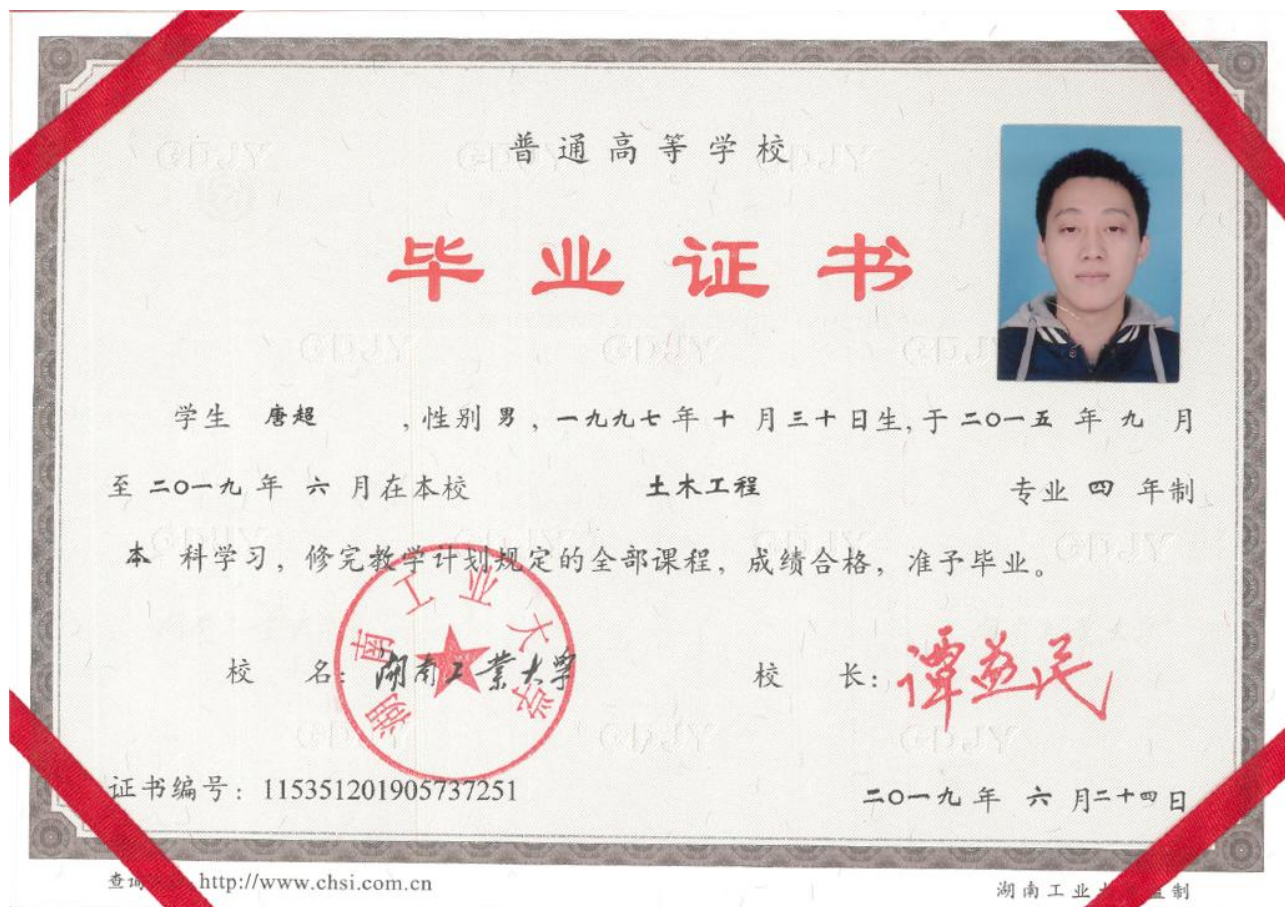 普通高等学校
毕业证书
学生 唐超 ，性别 男，一九九七年 十 月三十日生，于 二〇一五 年 九 月
至 二〇一九 年 六 月在本校 土木工程 专业 四 年制
本 科学习，修完教学计划规定的全部课程，成绩合格，准予毕业。
湖南工业大学
校 名：湖南工業大學 校 长：谭益民
证书编号：115351201905737251 二〇一九 年 六 月二十四日
http://www.chsi.com.cn 湖南工业 制